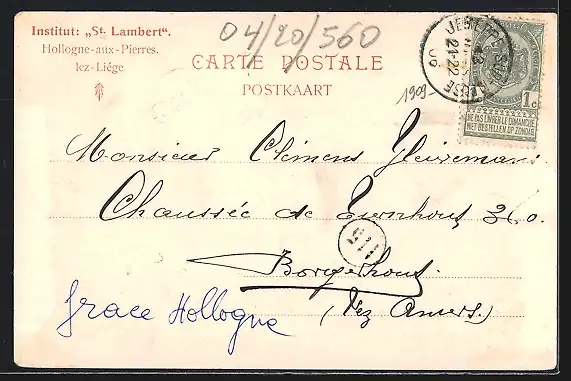 Institut: „St. Lambert".
Hollogne-aux-Pierres.
lez-Liége.
04/20/560
CARTE POSTALE
POSTKAART
1909
21-22
1c
NE PAS LIVRER LE DIMANCHE
NIET BESTELLEN OP ZONDAG
Monsieur Clémens
Chaussée de Turnhout 360.
Borgerhout
(lez Anvers.)
Grace Hollogne